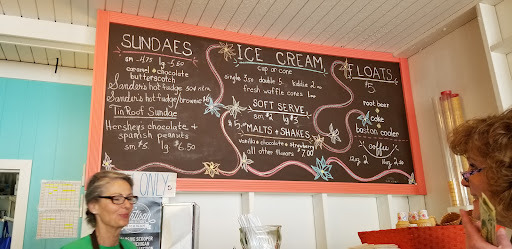 SUNDAES
sm - 4.75 lg - 5.50
caramel • chocolate
butterscotch
Sanders hot fudge
Sanders hot fudge/brownie
Tin Roof Sundae
Hersheys chocolate +
spanish peanuts
sm $5. lg $6.50
ICE CREAM
cup or cone
single 3.50 double 5. kiddie 2.
fresh waffle cones
SOFT SERVE
sm $2 lg $3
MALTS + SHAKES
vanilla • chocolate • strawberry
all other flavors $7.00
FLOATS
$5
root beer
coke
boston cooler
coffee
reg. 2
ONLY